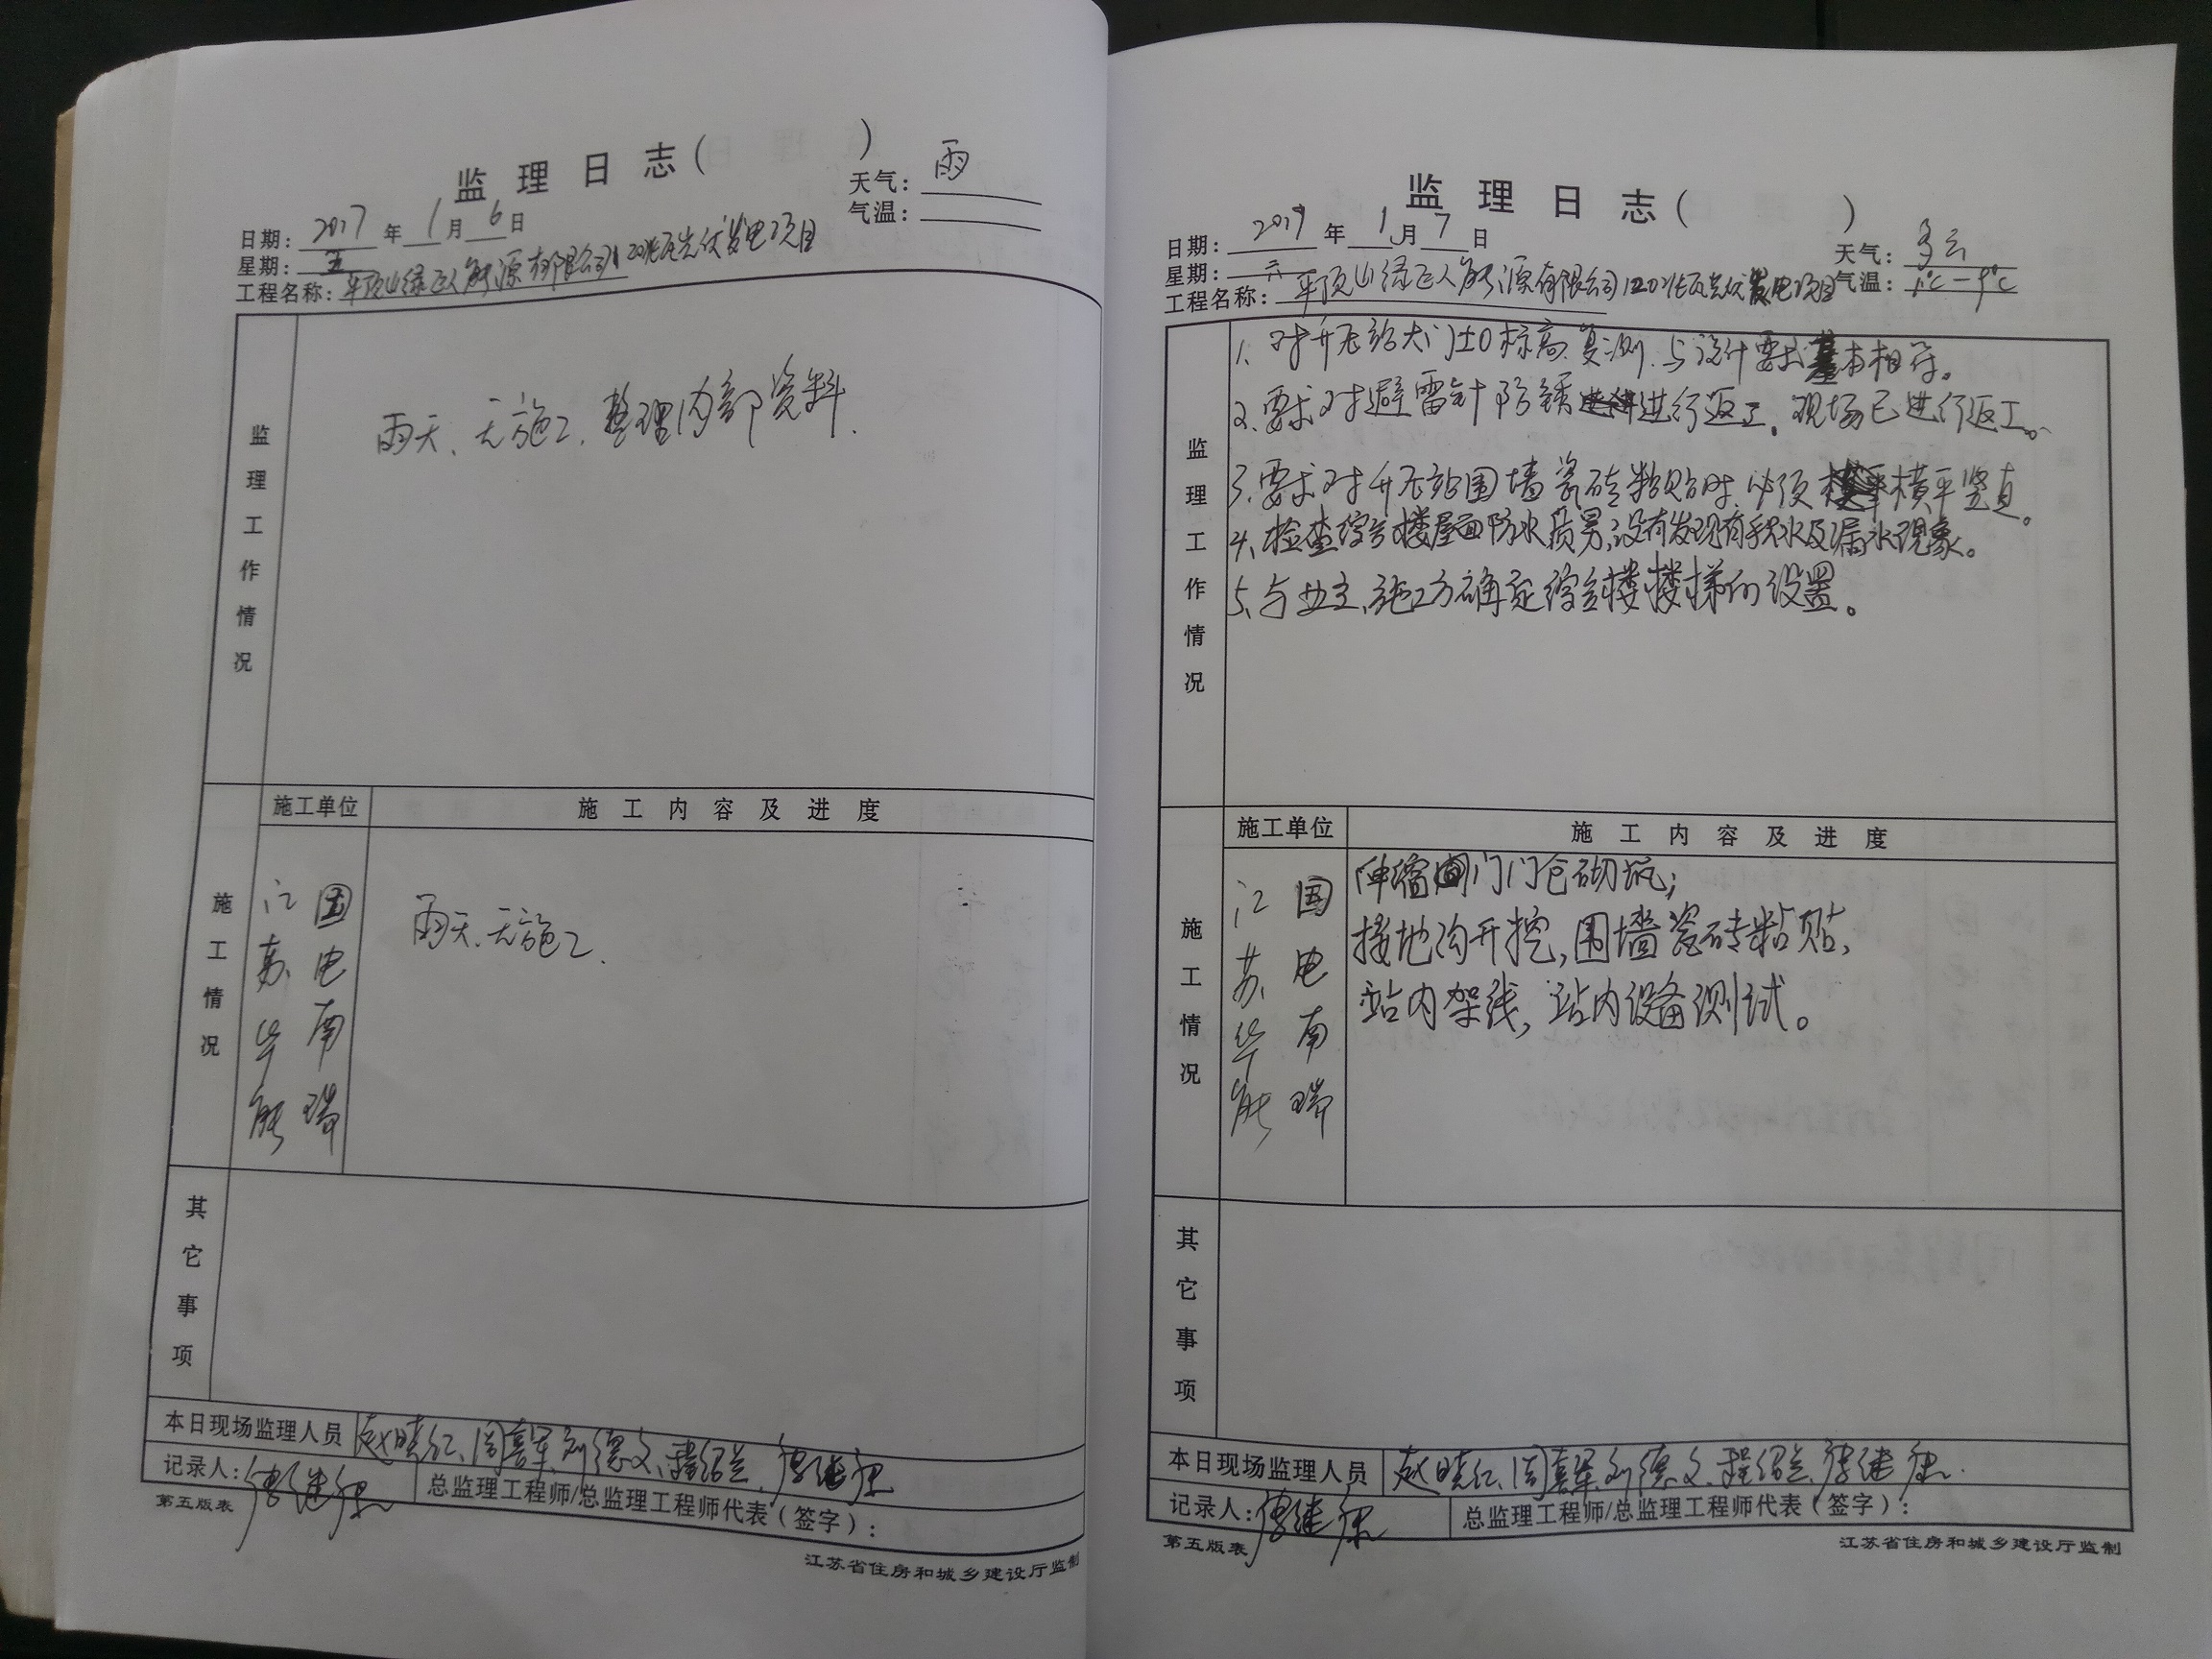 监理日志（ ）
天气：雨
气温：
日期：2017年1月6日
星期：五
工程名称：平顶山绿巨人能源有限公司120兆瓦光伏发电项目
监理工作情况
雨天、无施工、整理内部资料.
施工单位
施工内容及进度
施工情况
江苏华能
国电南瑞
雨天、无施工.
其它事项
本日现场监理人员
记录人：
总监理工程师/总监理工程师代表（签字）：
第五版表
江苏省住房和城乡建设厅监制
监理日志（ ）
日期：2017年1月7日
天气：多云
星期：六
气温：
工程名称：平顶山绿巨人能源有限公司120兆瓦光伏发电项目
监理工作情况
1、对升压站大门±0标高复测.与设计要求基本相符。
2、要求对避雷针防锈进行返工，现场已进行返工。
3、要求对升压站围墙瓷砖粘贴时.必须横平竖直。
4、检查综合楼屋面防水质量,没有发现有积水及漏水现象。
5、与业主、施工方确定综合楼楼梯的设置。
施工单位
施工内容及进度
施工情况
江苏华能
国电南瑞
伸缩门门仓砌筑；
接地沟开挖，围墙瓷砖粘贴，
站内架线，站内设备测试。
其它事项
本日现场监理人员
记录人：
总监理工程师/总监理工程师代表（签字）：
第五版表
江苏省住房和城乡建设厅监制